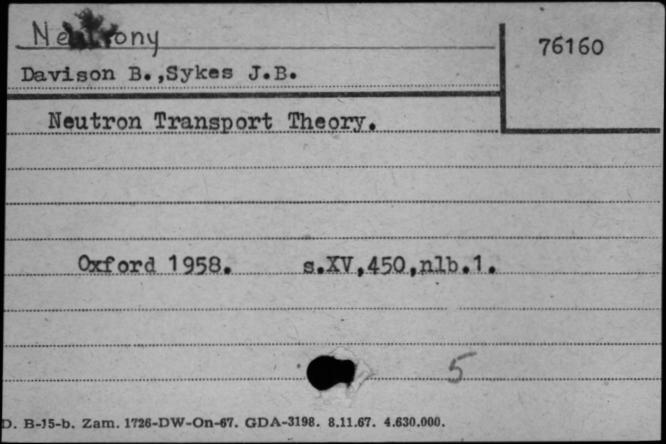 Neutrony
76160
Davison B.,Sykes J.B.
Neutron Transport Theory.
Oxford 1958. s.XV,450,nlb.1.
5
D. B-15-b. Zam. 1726-DW-On-67. GDA-3198. 8.11.67. 4.630.000.